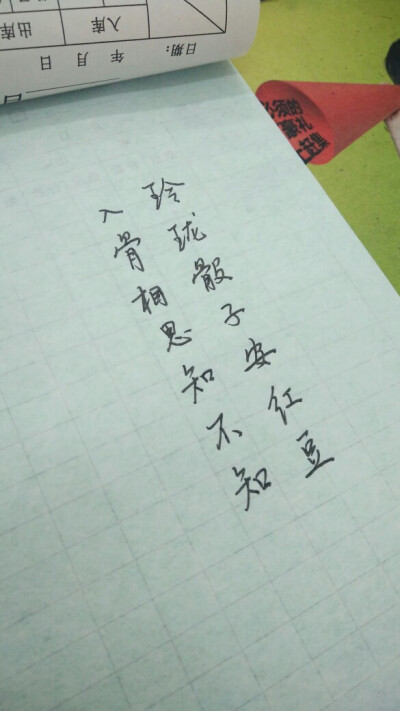 玲珑骰子安红豆
入骨相思知不知
入库
出库
日期: 年 月 日
必须的
豪礼